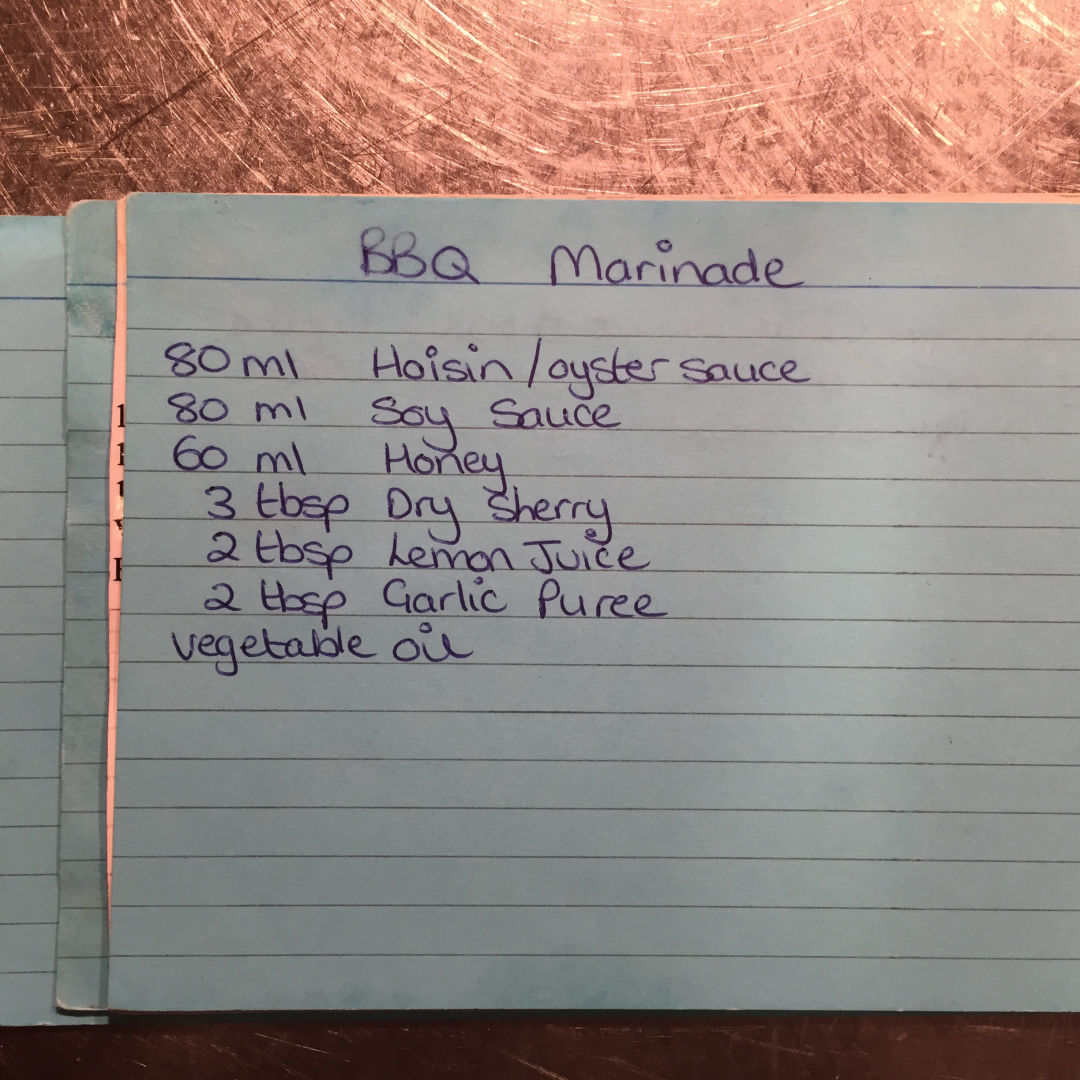 BBQ Marinade
80 ml Hoisin/oyster sauce
80 ml Soy Sauce
60 ml Honey
3 tbsp Dry Sherry
2 tbsp Lemon Juice
2 tbsp Garlic Puree
vegetable oil